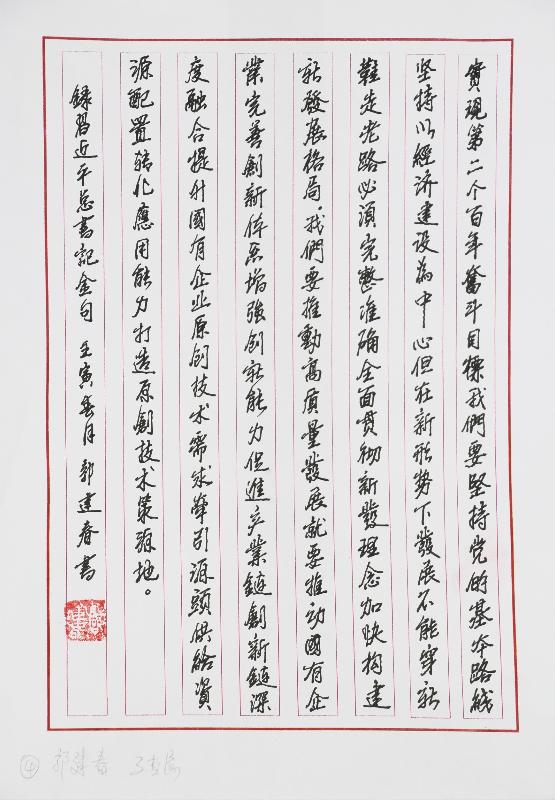 實現第二个百年奮斗目標我們要堅持党的基本路綫
坚持以經济建设為中心但在新形势下發展不能穿新
鞋走老路必須完整准确全面貫彻新發理念加快构建
新發展格局。我們要推動高质量發展就要推动國有企
業完善創新体系增强创新能力促進产業鏈創新鏈深
度融合提升國有企业原创技术需求牵引源頭供給資
源配置转化應用能力打造原創技术策源地。
録習近平总書記金句 壬寅春月 郭建春書
④ 郭建春